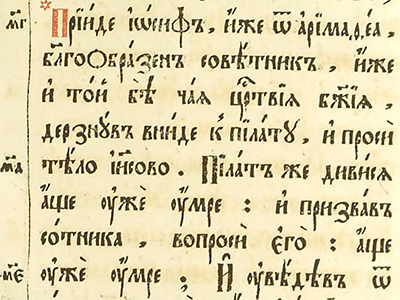 мг Прїи́де їѡ́сифъ, и҆́же ѿ а҆рїмаѳе́а,
бл҃гоѻбра́зенъ совѣ́тникъ, и҆́же
и҆ то́й бѣ̀ ча́ѧ црⷭ҇твїѧ бж҃їѧ,
дерзнꙋ́въ вни́де къ пїла́тꙋ, и҆ просѝ
тѣ́ло їи҃сово.
мд Пїла́тъ же диви́сѧ
а҆́ще ᲂу҆жѐ ᲂу҆́мре : и҆ призва́въ
со́тника, вопросѝ є҆го̀ : а҆́ще
ᲂу҆жѐ ᲂу҆́мре,
ме И҆ ᲂу҆вѣ́дѣвъ ѿ